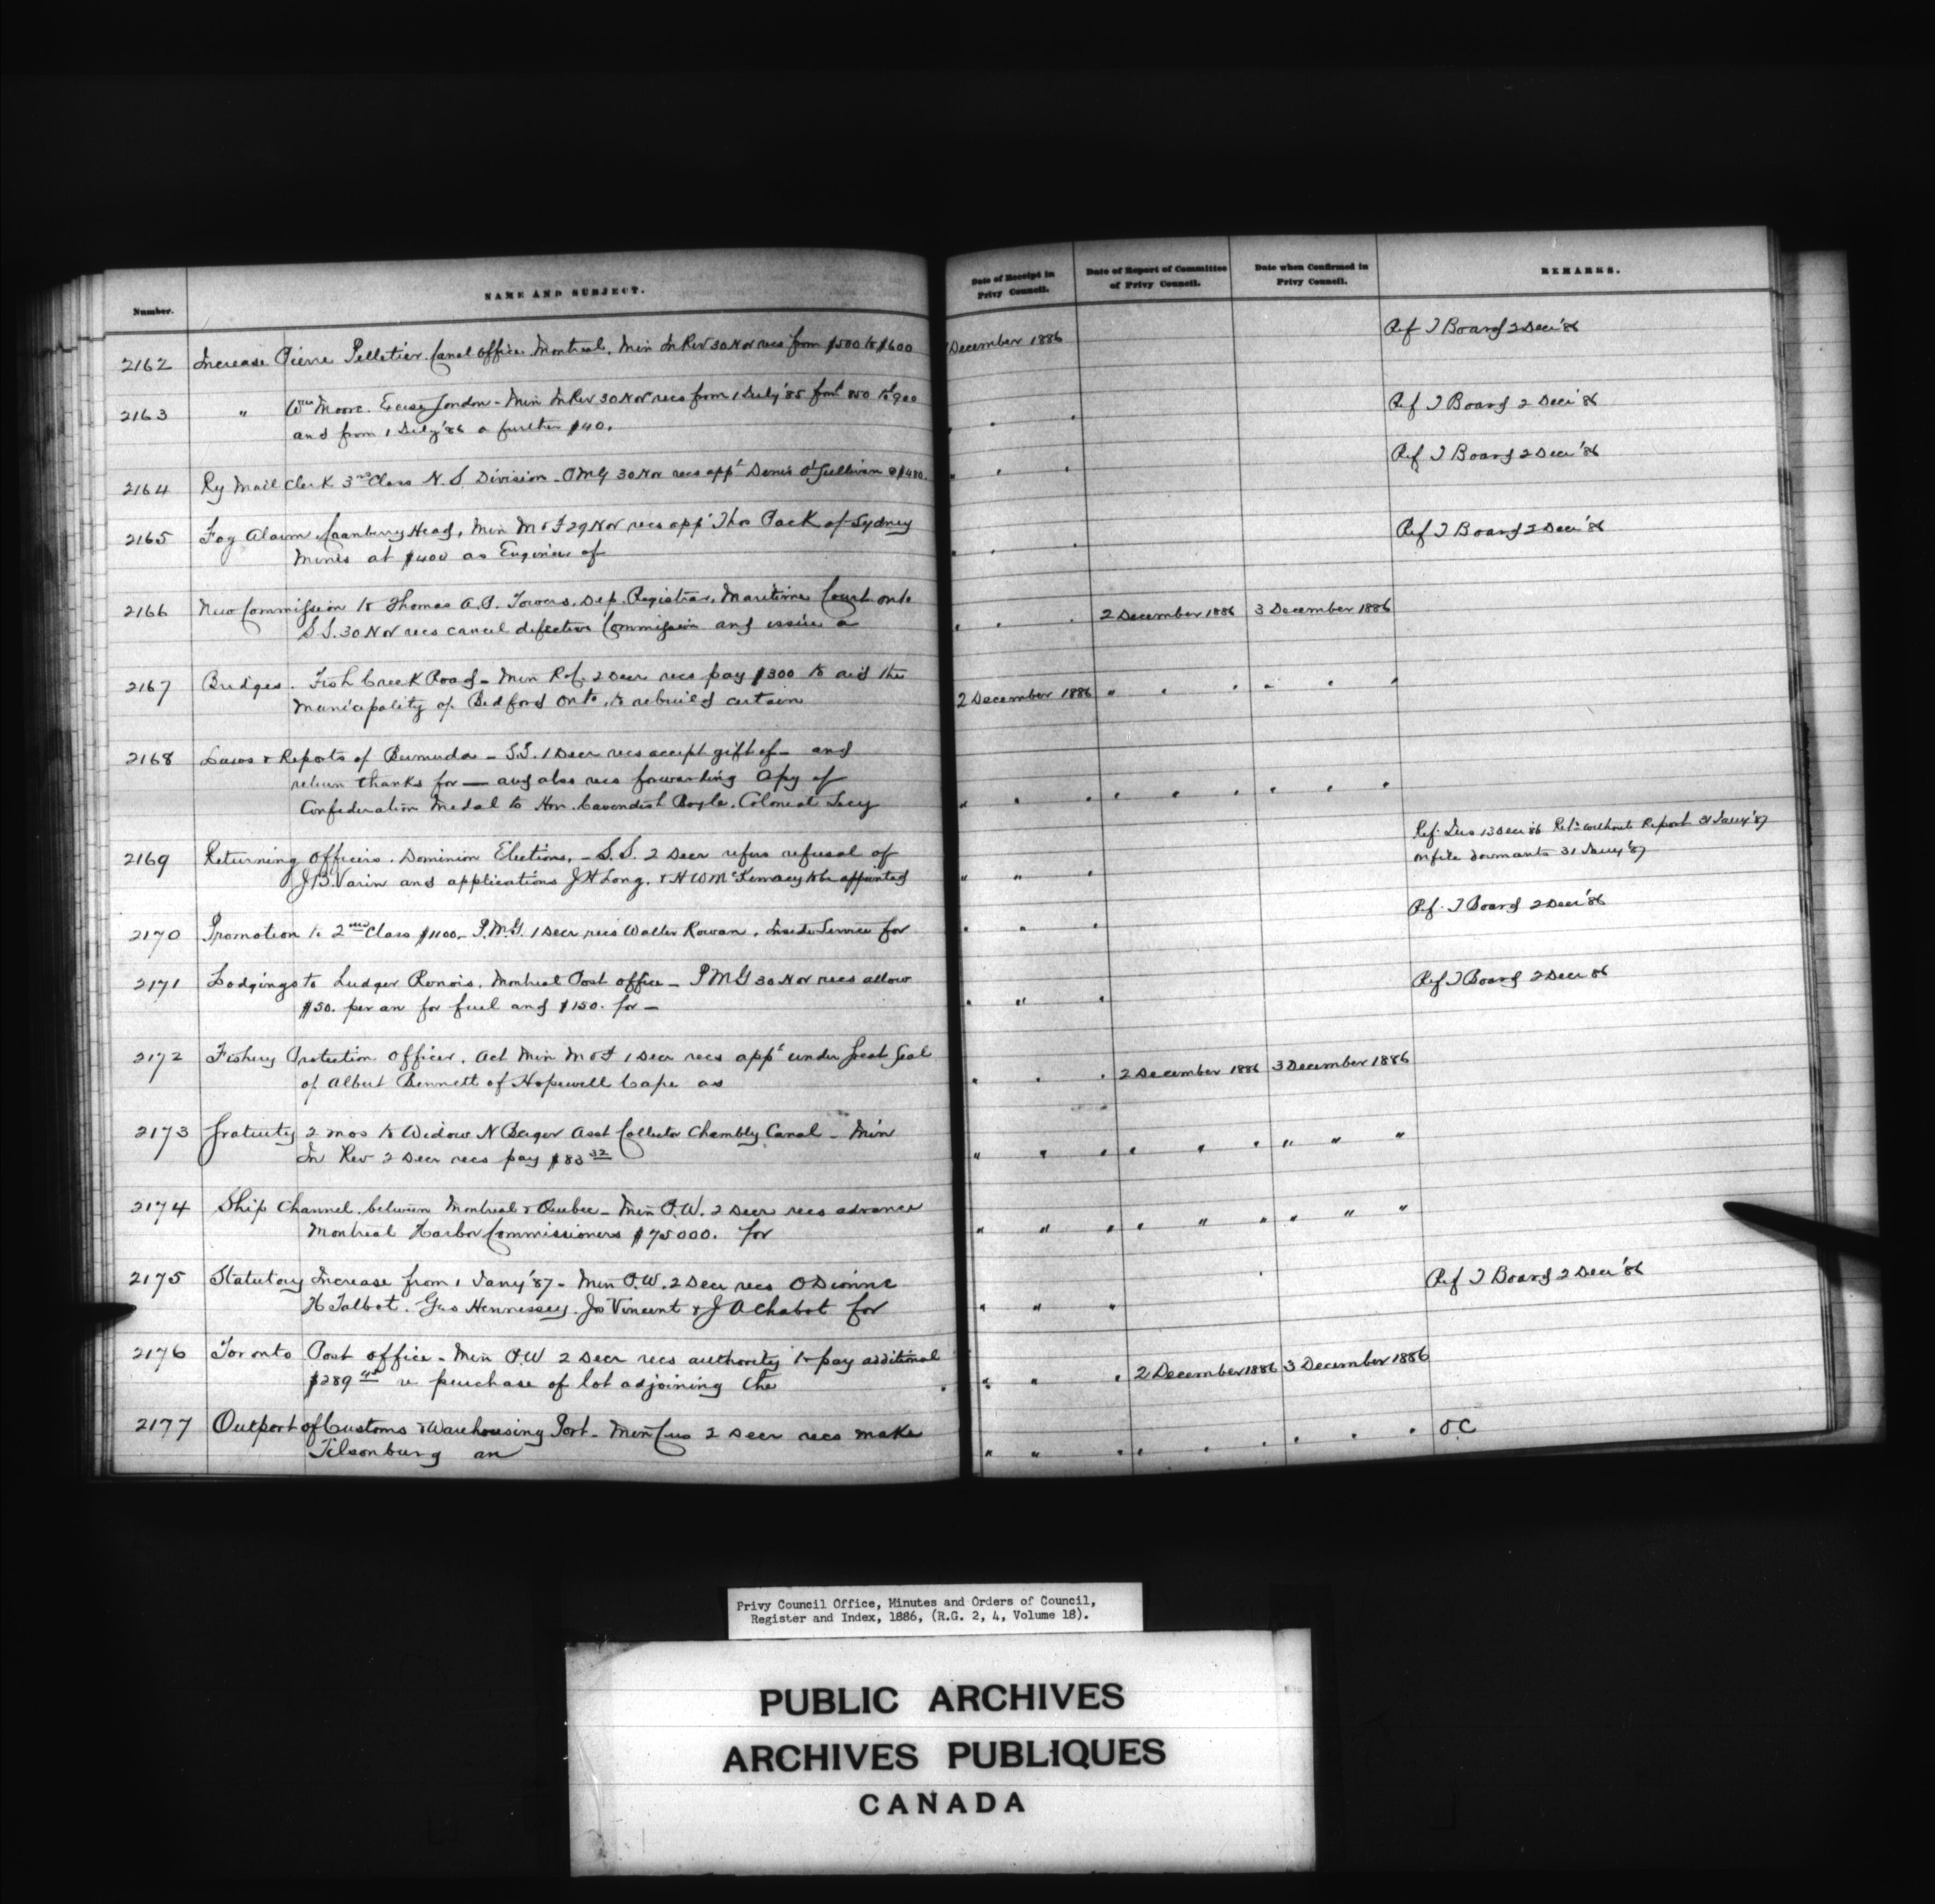 Number.
NAME AND SUBJECT.
Date of Receipt in
Privy Council.
Date of Report of Committee
of Privy Council.
Date when Confirmed in
Privy Council.
REMARKS.
2162 Increase Pierre Pelletier. Canal Office Montreal. Min In Rev 30 Nov recs from $500 to $600 December 1886 Ref T Board 2 Decr '86
2163 " Wm Moore. Excise London - Min In Rev 30 Nov recs from 1 July '85 from 850 to 900 Ref T Board 2 Decr '86
and from 1 July '86 a further $40.
2164 Ry Mail Clerk 3rd Class N. S. Division - PMG 30 Nov recs appt Denis O'Sullivan @ $480. " " " Ref T Board 2 Decr '86
2165 Fog Alarm Cranberry Head, Min M & F 29 Nov recs appt Thos Pack of Sydney Ref T Board 2 Decr '86
Mines at $400 as Engineer of " " "
2166 New Commission to Thomas A. P. Towers. Dep. Registrar. Maritime Court Onto 2 December 1886 3 December 1886
S S. 30 Nov recs cancel defective Commission and issue a " " "
2167 Bridges. Fish Creek Road - Min 2 Decr recs pay $300 to aid the
Municipality of Bedford Onto, to rebuild certain 2 December 1886 " " " " " "
2168 Laws & Reports of Bermuda - S.S. 1 Decr recs accept gift of - and
return thanks for — and also recs forwarding Copy of
Confederation Medal to Hon. Cavendish Boyle. Colonial Secy " " " " " " " " "
2169 Returning Officers. Dominion Elections. - S.S. 2 Decr refers refusal of Ref. Jus 13 Decr '86 Retd without Report 31 Jany '87
J. B. Varin and applications J H Long. & H W McKenney to be appointed " " " on file dormants 31 Jany '87
2170 Promotion to 2nd Class $1100. P.M.G. 1 Decr recs Walter Rowan. Inside Service for " " " Ref. T Board 2 Decr '86
2171 Lodgings to Ludger Renois. Montreal Post Office - PMG 30 Nov recs allow Ref T Board 2 Decr 86
$50. per an for fuel and $150. for — " " "
2172 Fishery Protection Officer. Act Min M & F 1 Decr recs appt under Great Seal
of Albert Bennett of Hopewell Cape as " " " 2 December 1886 3 December 1886
2173 Gratuity 2 mos to Widow N Berger Asst Collector Chambly Canal - Min
In Rev 2 Decr recs pay $83 32 " " " " " " " " "
2174 Ship Channel. between Montreal & Quebec - Min P.W. 2 Decr recs advance
Montreal Harbor Commissioners $75000. for " " " " " " " " "
2175 Statutory Increase from 1 Jany '87 - Min P.W. 2 Decr recs O Dionne Ref T Board 2 Decr '86
H Talbot. Gus Hennessey. Jos Vincent & J A Chabot for " " "
2176 Toronto Post Office - Min P.W 2 Decr recs authority to pay additional
$289 re purchase of lot adjoining the " " " 2 December 1886 3 December 1886
2177 Outport of Customs & Warehousing Port - Min Cus 2 Decr recs make O.C
Tilsonburg an " " " " " " " " "
Privy Council Office, Minutes and Orders of Council,
Register and Index, 1886, (R.G. 2, 4, Volume 18).
PUBLIC ARCHIVES
ARCHIVES PUBLIQUES
CANADA